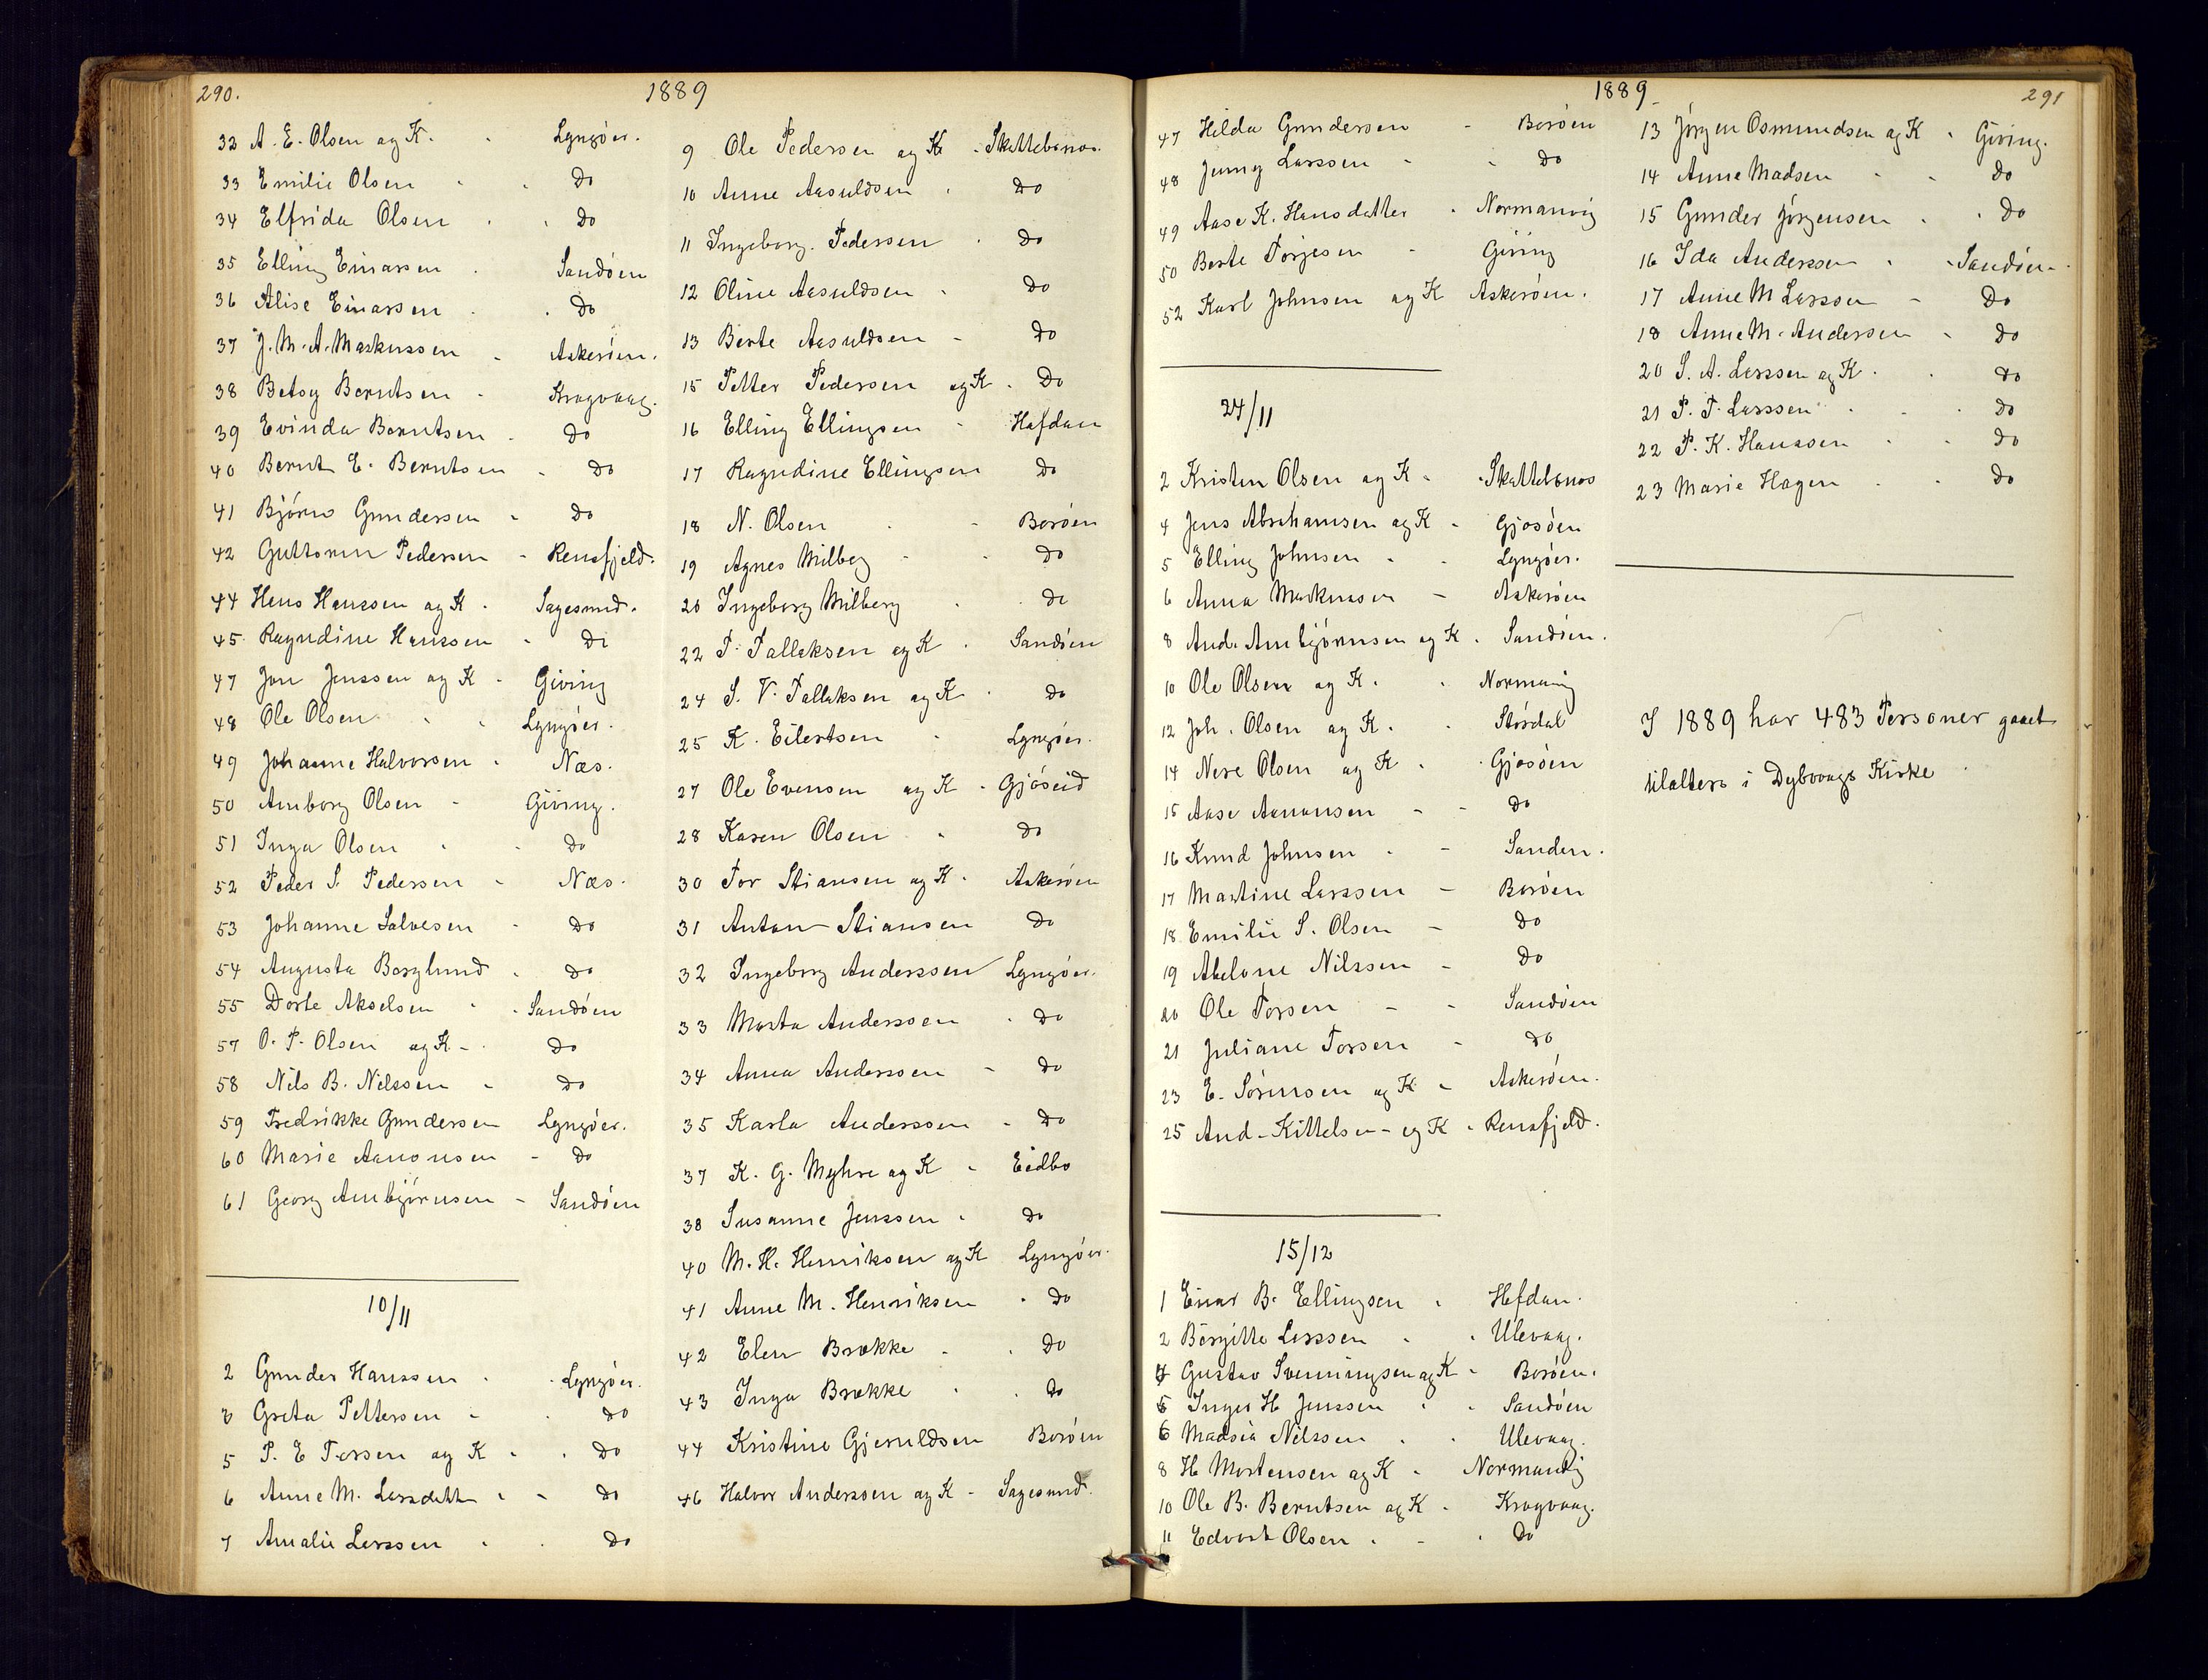 290.
1889
32 A. E. Olsen og K. - Lyngöer.
33 Emilie Olsen - - Do
34 Elfrida Olsen - - Do
35 Elling Einarsen - Sandöen
36 Alise Einarsen - - Do
37 J. M. A. Markussen - Askeröen.
38 Betsy Berntsen - Kragvaag.
39 Evinda Berntsen - Do
40 Bernt E. Berntsen - Do
41 Björn Gundersen - Do
42 Guttorm Pedersen - Rensfjeld.
44 Hans Hanssen og K - Sagesund.
45 Ragndine Hanssen - Do
47 Jon Jenssen og K - Giving
48 Ole Olsen - - Lyngöer.
49 Johanne Halvorsen - Næs.
50 Amborg Olsen - Giving.
51 Inga Olsen - - Do
52 Peder S. Pedersen - Næs.
53 Johanne Salvesen - Do
54 Augusta Berglund - Do
55 Dorte Akselsen - - Sandöen
57 O. P. Olsen og K - - Do
58 Nils B. Nilssen - Do
59 Fredrikke Gundersen Lyngöer.
60 Marie Aanonsen - Do
61 Georg Ambjörnsen - Sandöen
10/11
2 Gunder Hanssen - - Lyngöer.
3 Greta Pettersen - - Do
5 P. E Torsen og K - - Do
6 Anne M. Larsdatter - - Do
7 Amalie Larssen - - Do
9 Ole Pedersen og K - Skattebænes.
10 Anne Aasuldsen - Do
11 Ingeborg Pedersen - Do
12 Oline Aasuldsen - Do
13 Berte Aasuldsen - Do
15 Petter Pedersen og K - Do
16 Elling Ellingsen - Hafdan
17 Ragndine Ellingsen Do
18 N. Olsen - - Boröen
19 Agnes Milberg - - Do
20 Ingeborg Milberg - - Do
22 T. Tallaksen og K - Sandöen
24 S. V. Tallaksen og K - Do
25 K. Eilertsen - Lyngöer.
27 Ole Evensen og K - Gjöseid
28 Karen Olsen - Do
30 Tor Stiansen og K - Askeröen
31 Anton Stiansen Do
32 Ingeborg Anderssen Lyngöer.
33 Marta Anderssen - Do
34 Anna Anderssen - Do
35 Karla Anderssen - Do
37 K. G. Myhre og K - Eidbo
38 Susanne Jenssen - Do
40 M. H. Henriksen og K Lyngöer.
41 Anne M. Henriksen - Do
42 Elen Brække - - Do
43 Inga Brække - - Do
44 Kristine Gjeruldsen Boröen
46 Halvor Anderssen og K - Sagesund.
1889
291
47 Hilda Gundersen - Boröen
48 Jenny Larssen - - Do
49 Aase K. Hansdatter - Normanvig
50 Berte Torjesen - Giving
52 Karl Johnsen og K Askeröen.
24/11
2 Kristen Olsen og K - Skattebænes
4 Jens Abrahamsen og K - Gjösöen
5 Elling Johnsen - - Lyngöer.
6 Anna Markussen - Askeröen
8 And. Ambjörnsen og K - Sandöen.
10 Ole Olsen og K. - Normanvig
12 Joh. Olsen og K. - Stördal
14 Nere Olsen og K - - Gjösöen
15 Aase Aanonsen - - Do
16 Knud Johnsen - - Sanden.
17 Martine Larssen - Boröen
18 Emilie S. Olsen - Do
19 Abelone Nilssen - Do
20 Ole Torsen - - Sandöen
21 Juliane Torsen - Do
23 E. Sörensen og K - Askeröen.
25 And. Kittelsen - og K - Rensfjeld.
15/12
1 Einar B. Ellingsen - Hefdan.
2 Börgitte Larssen - - Ulevaag.
4 Gustav Svenningsen og K - Boröen.
5 Inger H Jenssen - - Sandöen
6 Madsia Nilssen - - Ulevaag.
8 H Mortensen og K - Normanvig
10 Ole B. Berntsen og K - Kragvaag.
11 Edvart Olsen - - - Do
13 Jörgen Osmundsen og K - Giving.
14 Anne Madsen - - Do
15 Gunder Jörgensen - - Do
16 Ida Anderssen - - Sandöen.
17 Anne M Larssen - Do
18 Anne M. Andersen - Do
20 S. A. Larssen og K - - Do
21 P. T. Larssen - - Do
22 P. K. Hanssen - - Do
23 Marie Hagen - - Do
I 1889 har 483 Personer gaaet
tilalters i Dybvaags Kirke